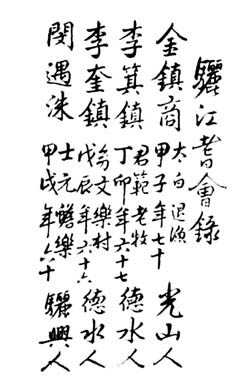 驪江耆會錄
金鎮商 太白 退漁 甲子年七十 光山人
李箕鎮 君範 老牧 丁卯年六十七 德水人
李奎鎮 文 樂村 戊辰年六十六 德水人
閔遇洙 士元 蟾樂 甲戌年六十 驪興人